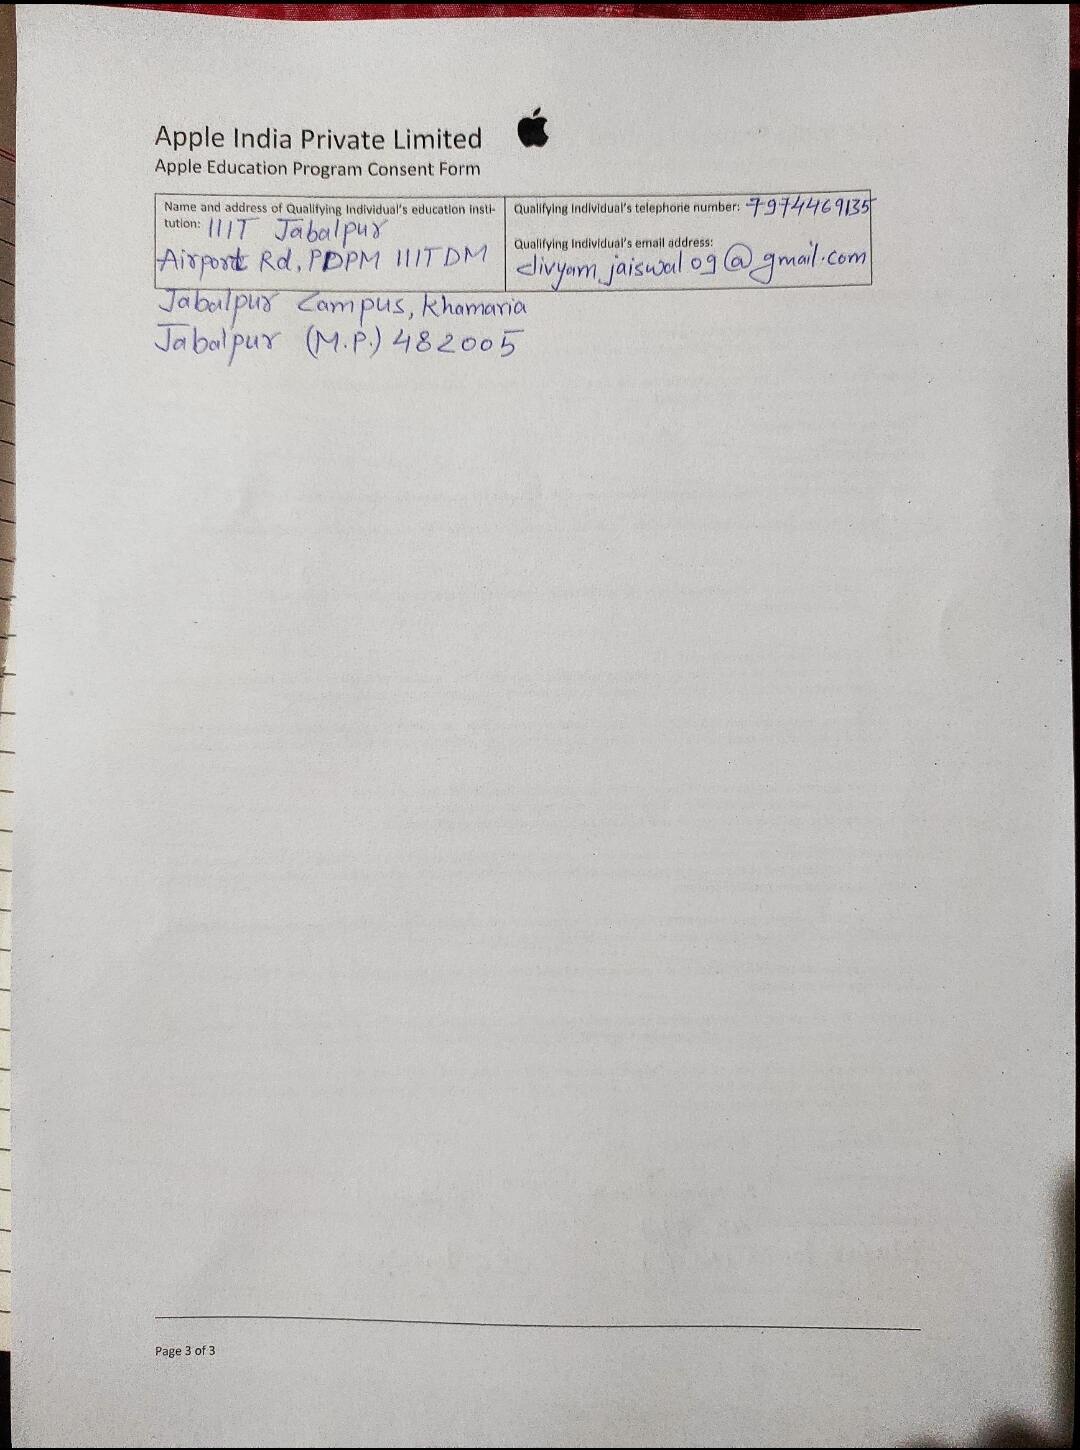 Apple India Private Limited
Apple Education Program Consent Form
Name and address of Qualifying Individual's education insti-
tution: IIIT Jabalpur
Airport Rd, PDPM IIITDM
Jabalpur Campus, Khamaria
Jabalpur (M.P.) 482005
Qualifying Individual's telephone number: 7974469135
Qualifying Individual's email address:
divyam jaiswal 09@gmail.com
Page 3 of 3